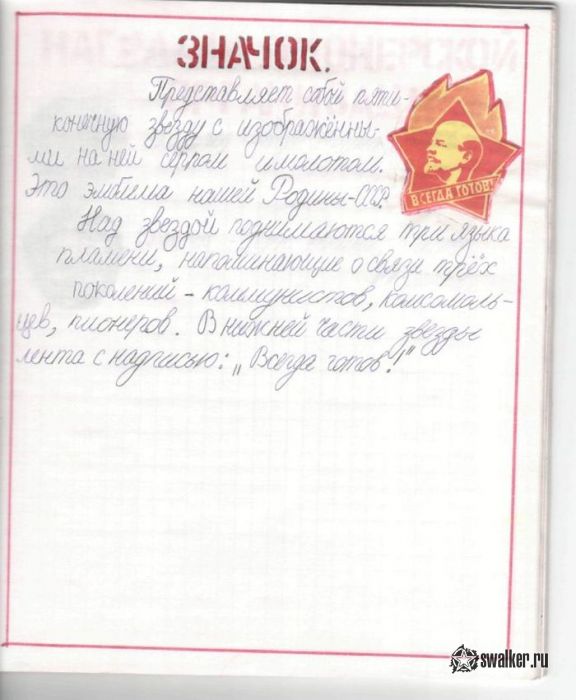 ЗНАЧОК.
Представляет собой пяти-
конечную звезду с изображённы-
ми на ней серпом и молотом.
Это эмблема нашей Родины-СССР.
Над звездой поднимаются три языка
пламени, напоминающие о связи трёх
поколений - коммунистов, комсомоль-
цев, пионеров. В нижней части звезды
лента с надписью: „Всегда готов!"
ВСЕГДА ГОТОВ!
swalker.ru